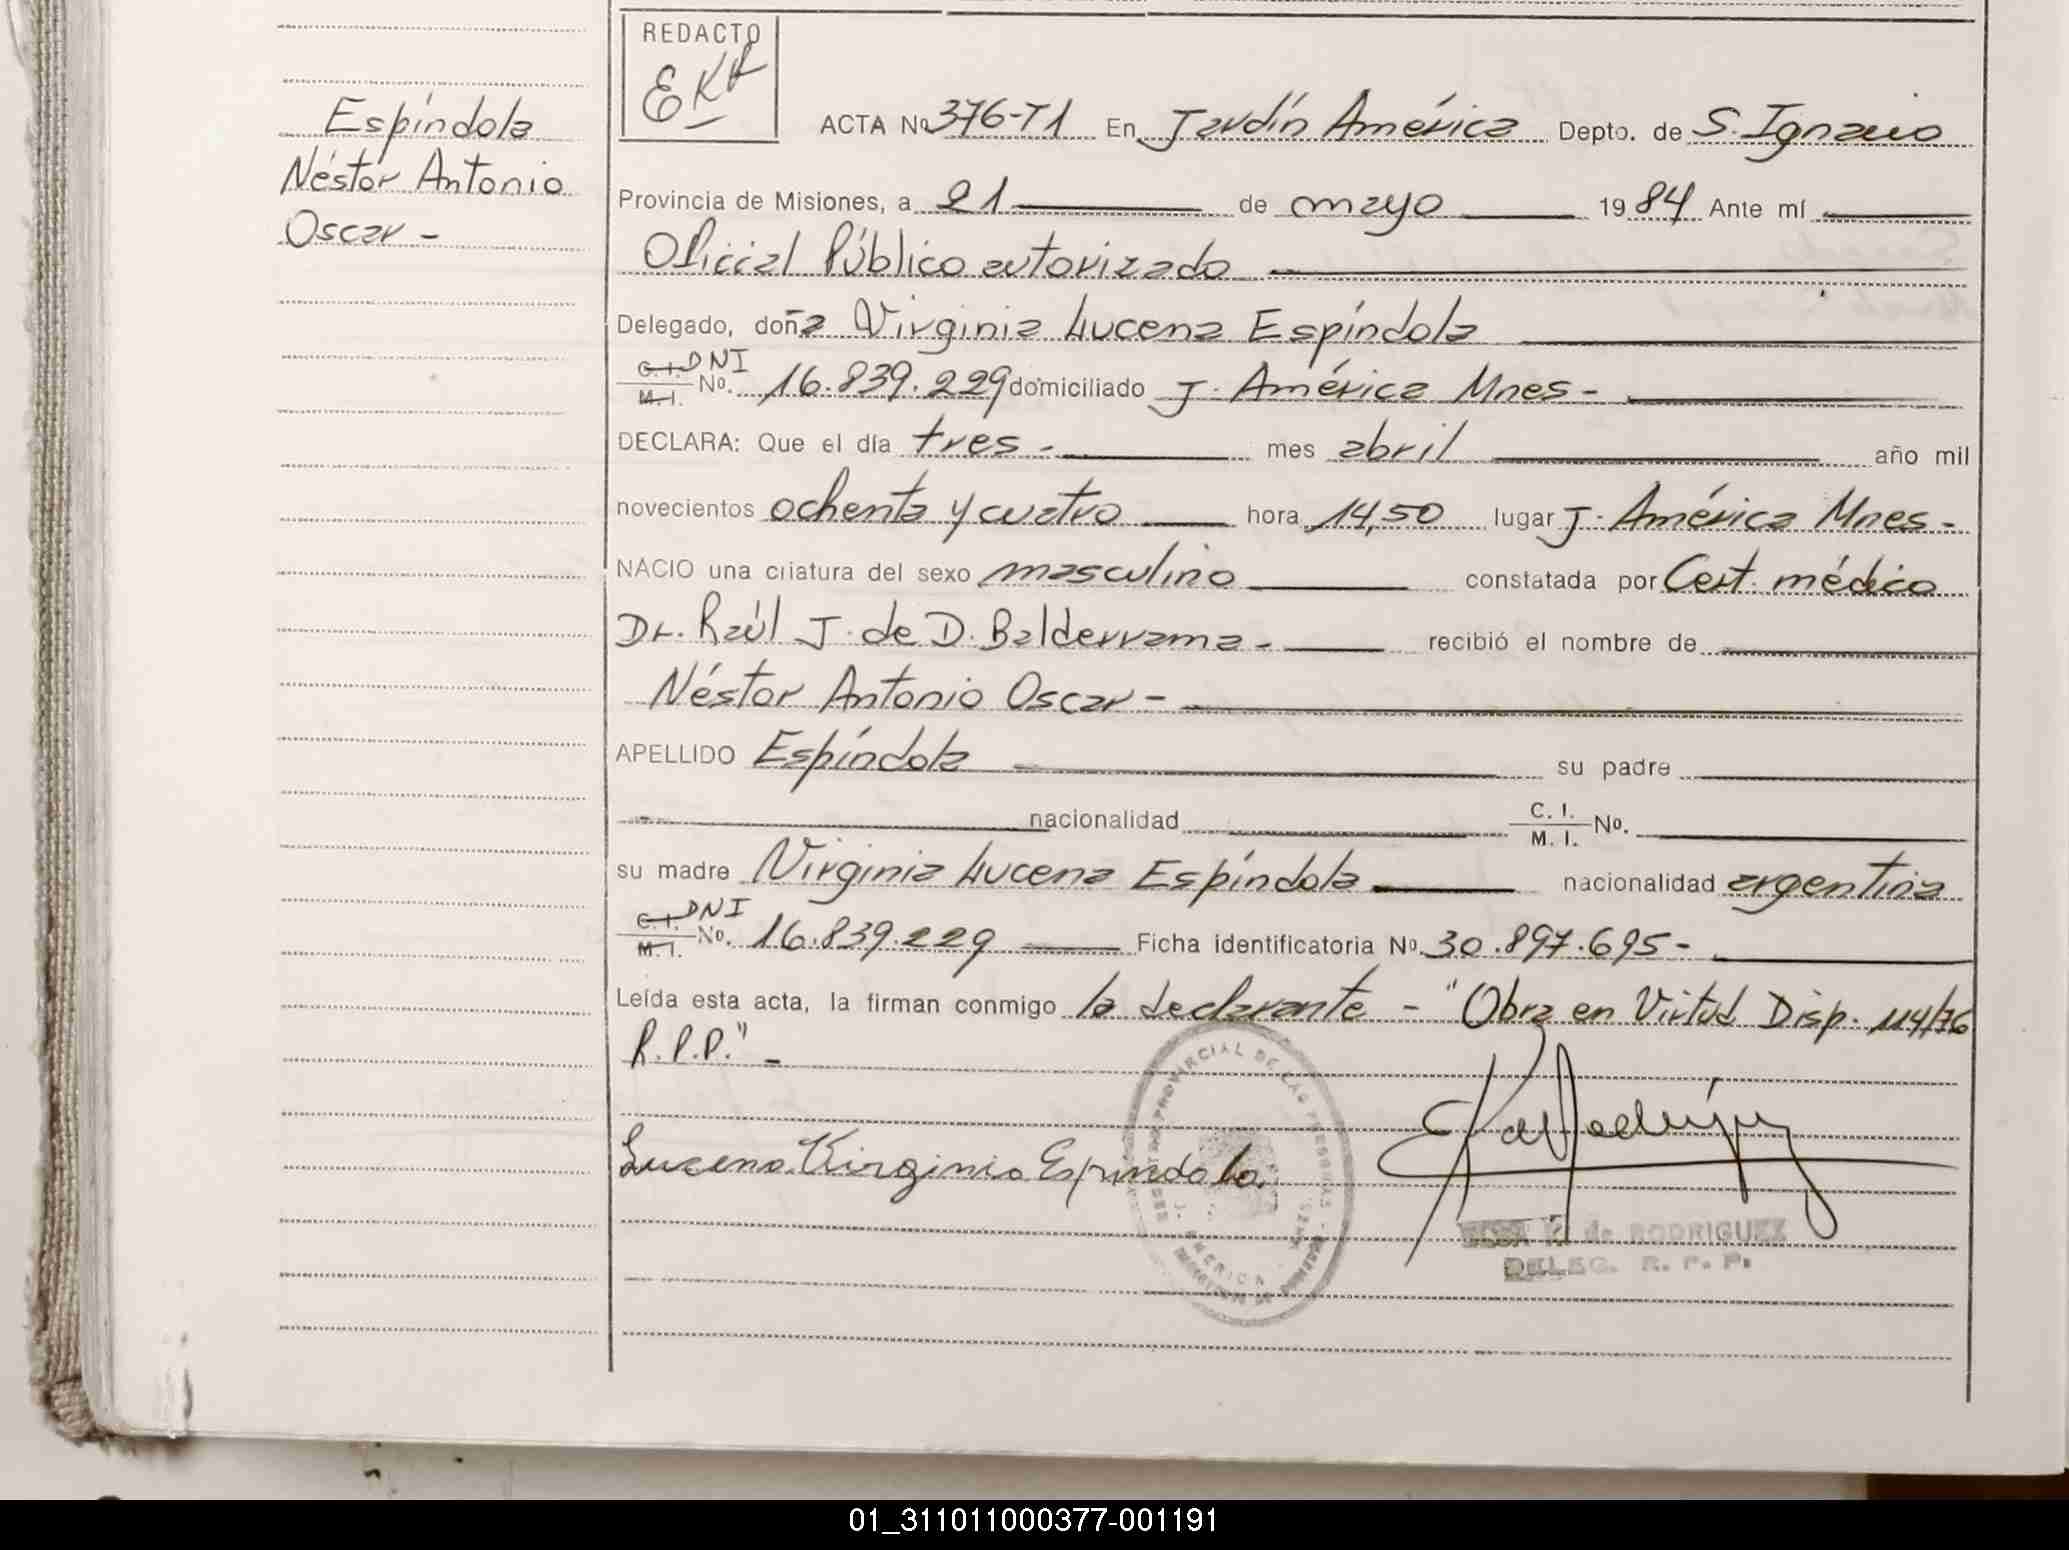 REDACTO
EKR
Espíndola
Néstor Antonio
Oscar -
ACTA No 376-T1 En Jardín América Depto. de S. Ignacio
Provincia de Misiones, a 21 de mayo 1984 Ante mí
Oficial Público autorizado
Delegado, doña Virginia Lucena Espíndola
C. I. DNI
M. I. No. 16.839.229 domiciliado J. América Mnes -
DECLARA: Que el día tres - mes abril año mil
novecientos ochenta y cuatro hora 14,50 lugar J. América Mnes -
NACIO una criatura del sexo masculino constatada por Cert. médico
Dr. Raúl J. de D. Balderrama - recibió el nombre de
Néstor Antonio Oscar -
APELLIDO Espíndola su padre
nacionalidad C. I.
M. I. No.
su madre Virginia Lucena Espíndola nacionalidad argentina
C. I. DNI
M. I. No. 16.839.229 Ficha identificatoria No. 30.897.695 -
Leída esta acta, la firman conmigo la declarante - "Obra en Virtud Disp. 114/76
R.P.P." -
PROVINCIAL DE LAS PERSONAS
J. AMERICA
MISIONES
Lucena Virginia Espindola.
de RODRIGUEZ
DELEG. R. P. P.
01_311011000377-001191